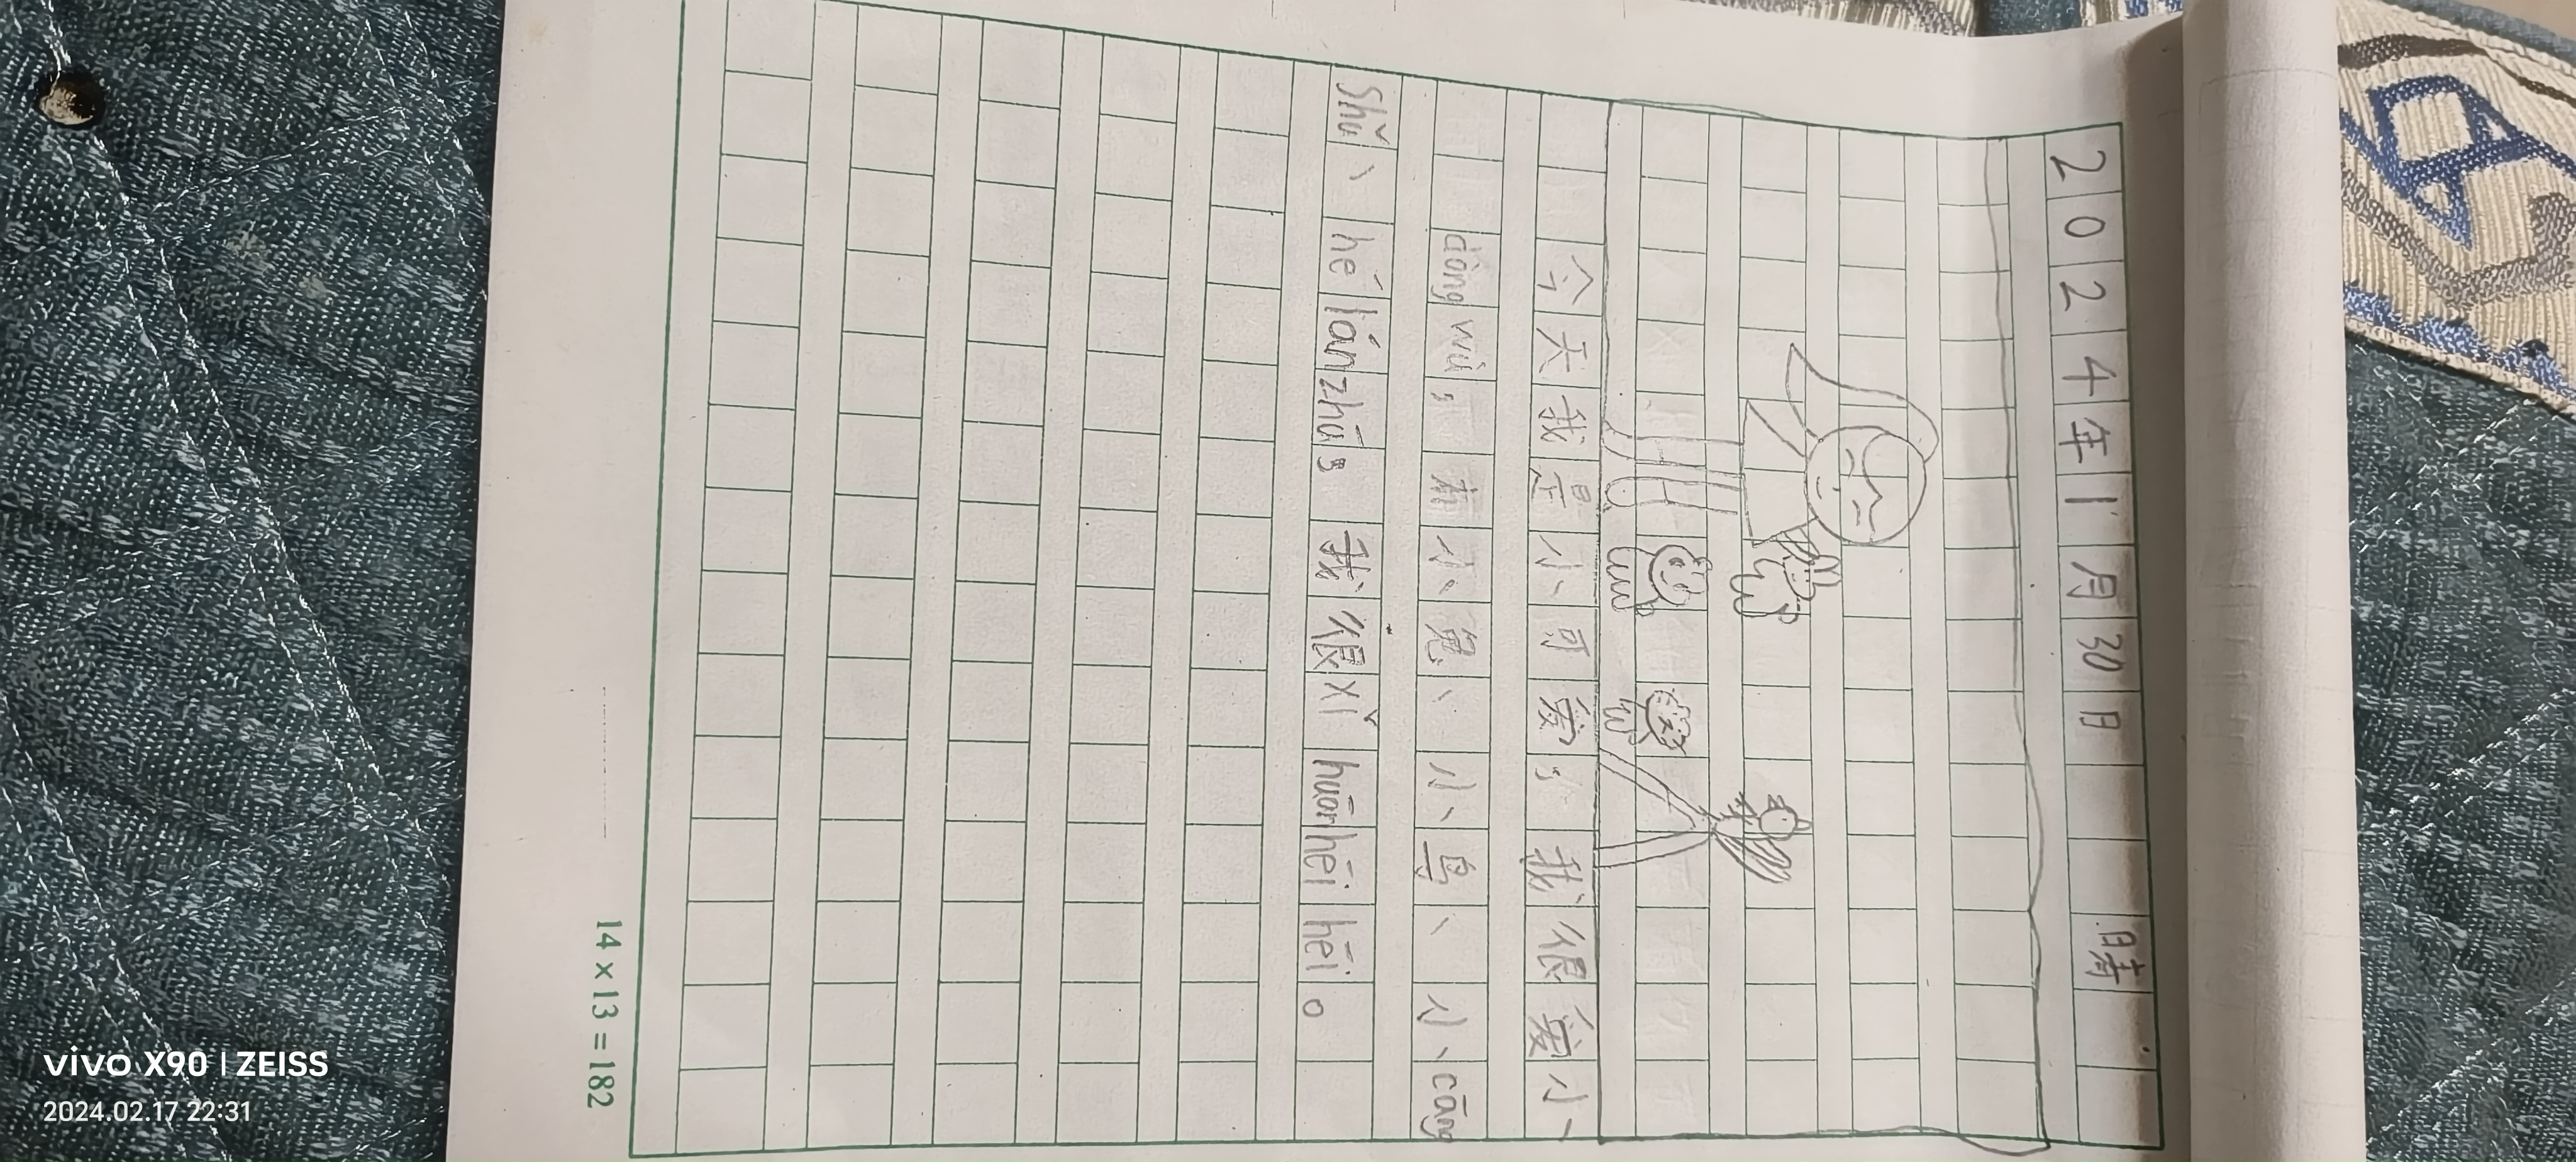 2024年1月30日 晴
今天我是小可爱，我很爱小
dòng wù，有小兔、小鸟、小cāng
shǔ、hé lán zhū，我很xǐ huān hēi hēi。
14×13=182
vivo X90 | ZEISS
2024.02.17 22:31